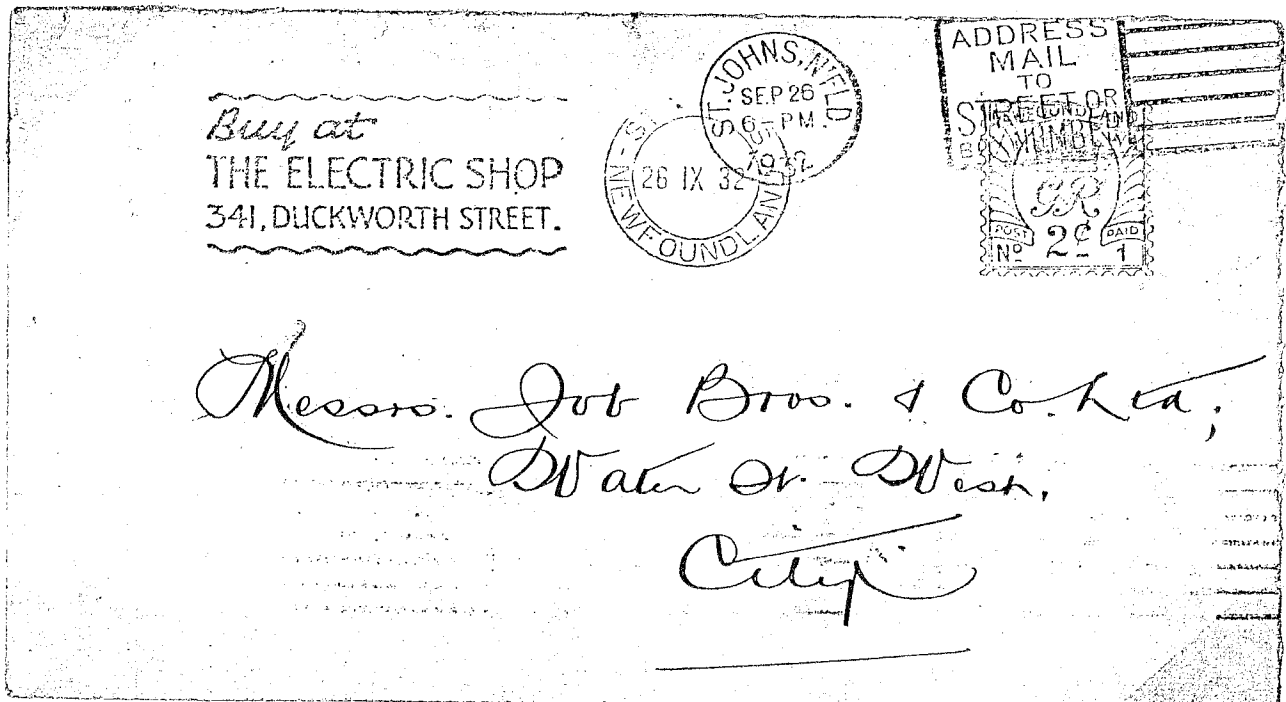 Buy at
THE ELECTRIC SHOP
341, DUCKWORTH STREET.
ST. JOHNS, N'FLD
SEP 26
6 - PM
1932
26 IX 32
NEWFOUNDLAND
ADDRESS
MAIL
TO
STREET OR
NUMBER
NEWFOUNDLAND
GR
POST PAID
Nº 2¢ 1
Messrs. Job Bros. & Co. Ltd;
Water St. West.
City